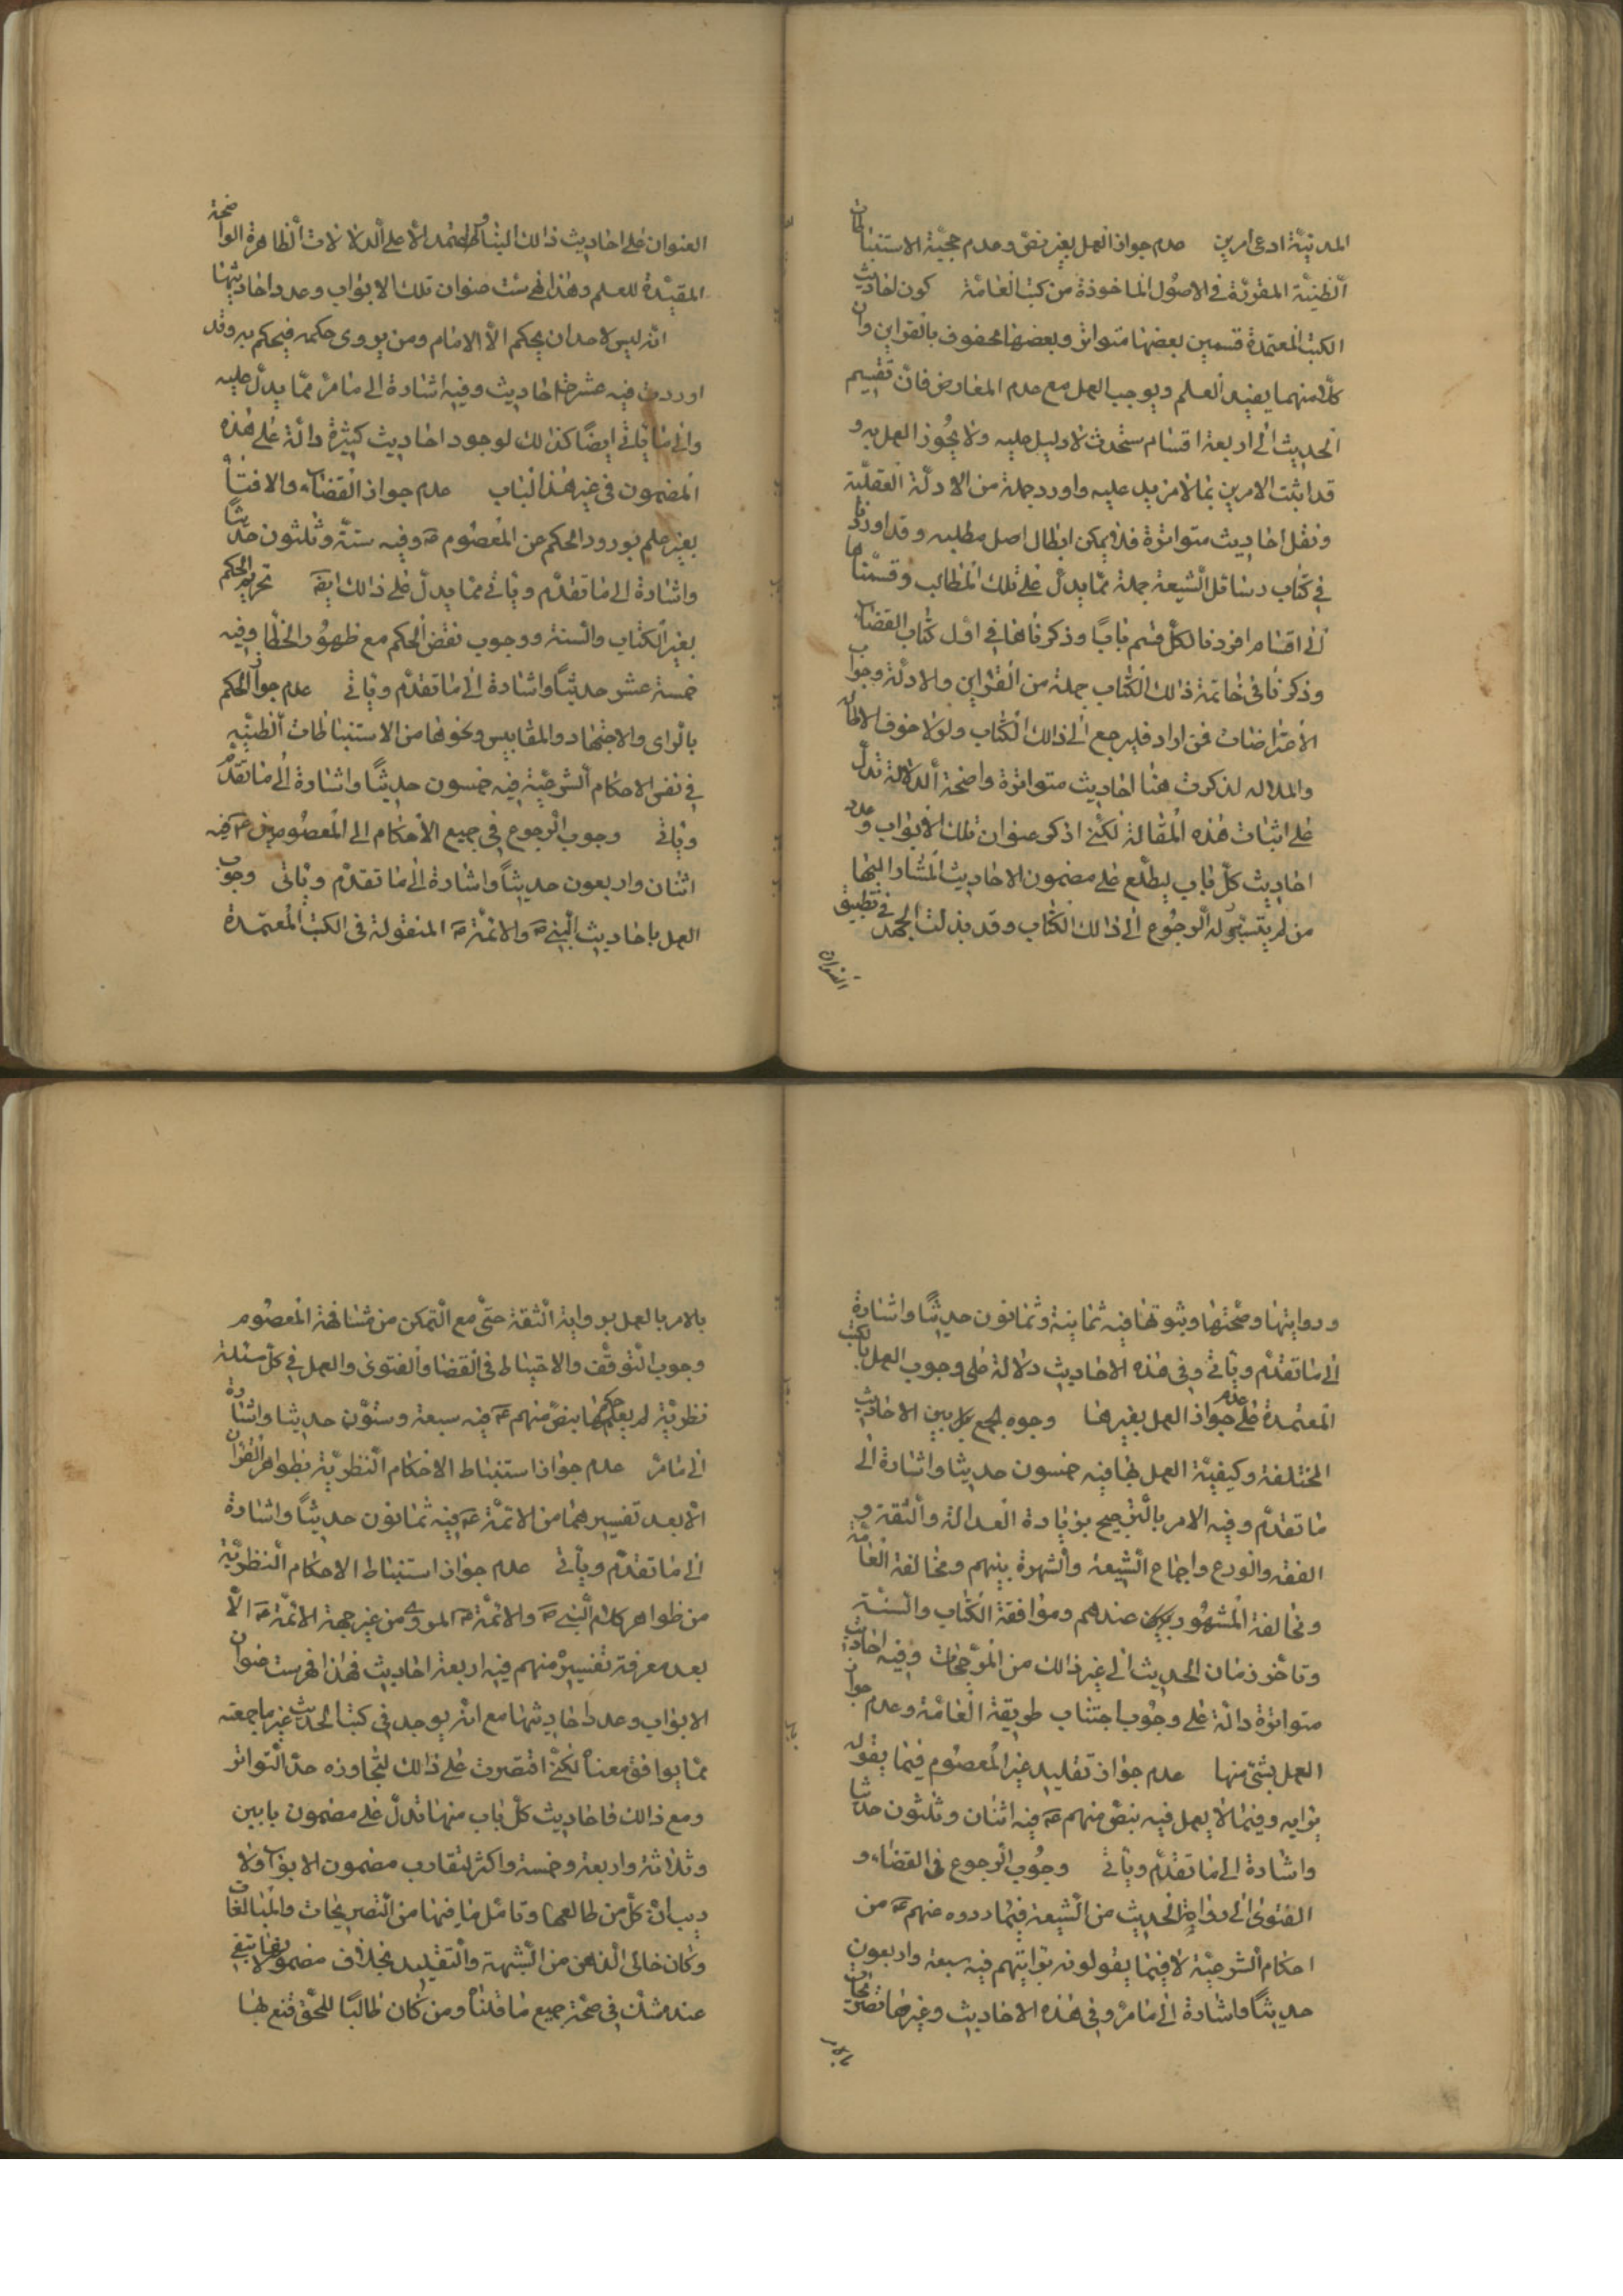 المدنية ادعى امرين عدم جواز العمل بغير نص وعدم حجية الاستنباطات
الظنية المقررة في الاصول الماخوذة من كتب العامة كون احاديث
الكتب المعتمدة قسمين بعضها متواتر وبعضها محفوف بالقراين وان
كلا منهما يفيد العلم ويوجب العمل مع عدم المعارض فان تقسيم
الحديث الى اربعة اقسام مستحدث لا دليل عليه ولا يجوز العمل به و
قد اثبت الامرين بما لا مزيد عليه واورد جملة من الادلة العقلية
ونقل احاديث متواترة فلا يمكن ابطال اصل مطلبه وقد اوردنا
في كتاب وسائل الشيعة جملة مما يدل على تلك المطالب وقسمناها
الى اقسام افردنا لكل قسم بابا وذكرناها في اول كتاب القضاء
وذكرنا في خاتمة ذلك الكتاب جملة من القراين والادلة وجواب
الاعتراضات فمن اراد فليرجع الى ذلك الكتاب ولولا خوف الاطالة
والملالة لذكرت هنا احاديث متواترة واضحة الدلالة تدل
على اثبات هذه المقالة لكني اذكر عنوان تلك الابواب وعدد
احاديث كل باب ليطلع على مضمون الاحاديث المشار اليها
من لم يتيسر له الرجوع الى ذلك الكتاب وقد بذلت الجهد في تطبيق
العنوان
العنوان على احاديث ذلك الباب ولم اعتمد الا على الدلالات الظاهرة الواضحة
المفيدة للعلم وهذا فهرست عنوان تلك الابواب وعدد احاديثها
انه ليس لاحد ان يحكم الا الامام ومن يروى حكمه فيحكم به وقد
اوردت فيه عشرة احاديث وفيه اشارة الى ما مر مما يدل عليه
والى ما ياتي ايضا كذلك لوجود احاديث كثيرة دالة على هذه
المضمون في غير هذا الباب عدم جواز القضاء والافتاء
بغير علم بورود الحكم عن المعصوم ع وفيه ستة وثلثون حديثا
واشارة الى ما تقدم وياتي مما يدل على ذلك ايض تحريم الحكم
بغير الكتاب والسنة ووجوب نقض الحكم مع ظهور الخطا وفيه
خمسة عشر حديثا واشارة الى ما تقدم وياتي عدم جواز الحكم
بالراى والاجتهاد والمقاييس ونحوها من الاستنباطات الظنية
في نفس الاحكام الشرعية فيه خمسون حديثا واشارة الى ما تقدم
وياتي وجوب الرجوع في جميع الاحكام الى المعصومين ع فيه
اثنان واربعون حديثا واشارة الى ما تقدم وياتي وجوب
العمل باحاديث النبي ص والائمة ع المنقولة في الكتب المعتمدة
وروايتها وصحتها وثبوتها فيه ثمانية وثمانون حديثا واشارة
الى ما تقدم وياتي وفي هذه الاحاديث دلالة على وجوب العمل بالكتب
المعتمدة على عدم جواز العمل بغيرها وجوه الجمع بين الاحاديث
المختلفة وكيفية العمل بها فيه خمسون حديثا واشارة الى
ما تقدم وفيه الامر بالترجيح بزيادة العدالة والثقة و
الفقه والورع واجماع الشيعة والشهرة بينهم ومخالفة العامة
ومخالفة المشهور عندهم وموافقة الكتاب والسنة
وتاخر زمان الحديث الى غير ذلك من المرجحات وفيه احاديث
متواترة دالة على وجوب اجتناب طريقة العامة وعدم جواز
العمل بشئ منها عدم جواز تقليد غير المعصوم فيما يقول
برايه وفيما لا يعمل فيه بنص منهم ع فيه اثنان وثلثون حديثا
واشارة الى ما تقدم وياتي وجوب الرجوع في القضاء و
الفتوى الى رواة الحديث من الشيعة فيما رووه عنهم ع من
احكام الشرعية لا فيما يقولونه برايهم فيه سبعة واربعون
حديثا واشارة الى ما مر وفي هذه الاحاديث وغيرها تصريحات
بالامر
بالامر بالعمل برواية الثقة حتى مع التمكن من مشافهة المعصوم
وجوب التوقف والاحتياط في القضا والفتوى والعمل في كل مسئلة
نظرية لم يعلم حكمها بنص منهم ع فيه سبعة وستون حديثا واشارة
الى ما مر عدم جواز استنباط الاحكام النظرية بظواهر القران
الا بعد تفسيرهما من الائمة ع فيه ثمانون حديثا واشارة
الى ما تقدم وياتي عدم جواز استنباط الاحكام النظرية
من ظواهر كلام النبي ص والائمة ع المروي من غير جهة الائمة ع الا
بعد معرفة تفسيره منهم فيه اربعة احاديث فهذا فهرست عنوان
الابواب وعدد احاديثها مع انه يوجد في كتب الحديث غير ما جمعته
مما يوافق معناه لكني اقتصرت على ذلك لتجاوزه حد التواتر
ومع ذلك فاحاديث كل باب منها تدل على مضمون بابين
وثلاثة واربعة وخمسة واكثر لتقارب مضمون الابواب ولا
ريب ان كل من طالعها وتامل ما فيها من التصريحات والمبالغات
وكان خالى الذهن من الشبهة والتقليد بخلاف مضمونها لا يبقى
عنده شك في صحة جميع ما قلنا ومن كان طالبا للحق قنع بها